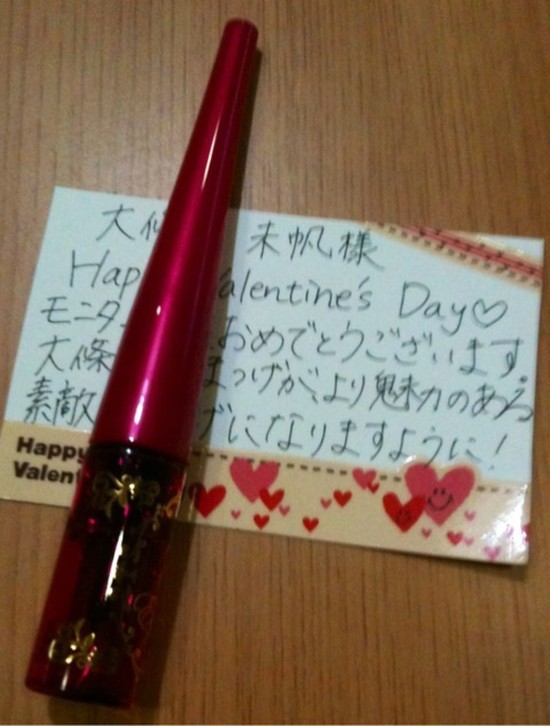 大條 未帆様
Hap alentine's Day♡
モニタ おめでとうございます。
大條 まつげが、より魅力のある
素敵 げになりますように!
Happy
Valen